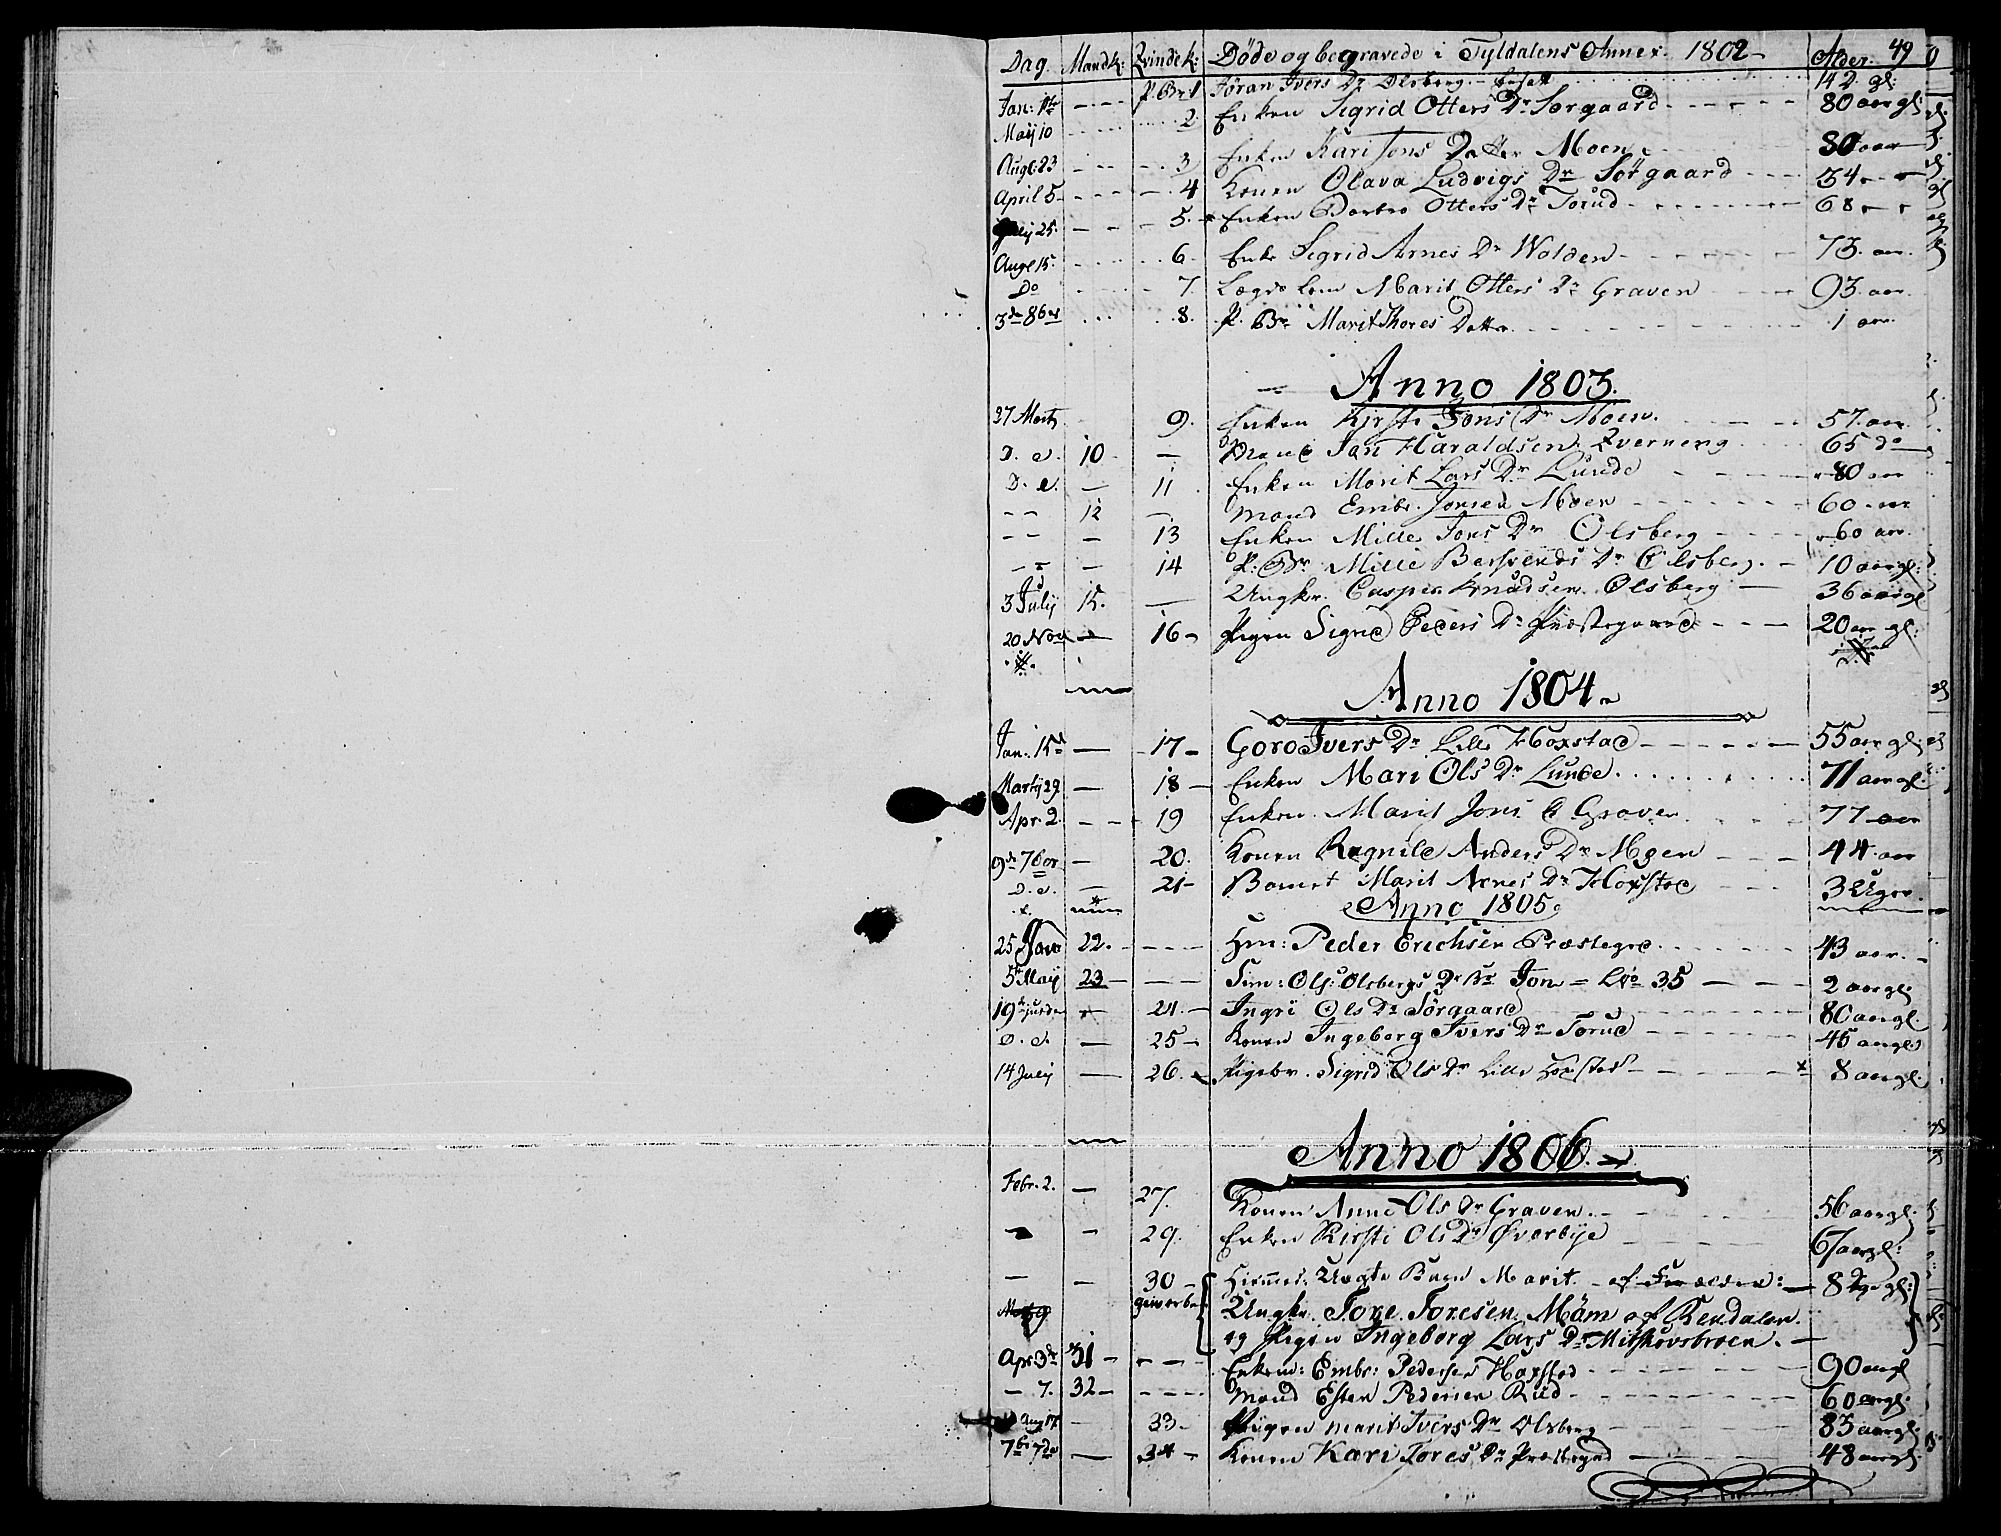 Dag. Mandk: Qvindek: Døde og begravede i Tyldalens Annex 1802 - Alder. 49
P. Br. 1 Jøran Ivers Dr Olsberg
Jan: 1te --- 2 Enken Sigrid Otters Dr Sørgaard 80 aar gl:
Maij 10
Augt: 23 3 Enken Kari Jons Datter Moen 80 aar
April 5 - 4 Konen Olava Ludvigs Dr Sørgaard 34
Julij 25. 5. Enken Barbro Otters Dr Torud 68
Augt 15. 6. Enke Sigrid Arnes Dr Wolden 73. aar.
Do 7. Lægds Lem Marit Otters Dr Graven 93 aar.
3de 8br 8. P. Br Marit Thores Datter 1 aar.
Anno 1803.
27 Marts 9. Enken Kirsti Jons Dr Moen. 57. aar
D. d. 10 - Mand Jan Haraldsen Qverneng 65 do
D. d. - 11 Enken Marit Lars Dr Lunde 80 aar
-- 12 - Mand Embr. Jonsen Moen 60 aar
-- - 13 Enken Mille Jons Dr Olsberg 60 aar.
-- - 14 P: Br. Mille Bersvends Dr Olsberg. 10 aar gl:
3 Julij 15. - Ungkr. Casper Knudsen Olsberg - 36 aar gl
20 Nov - 16 - Pigen Signe Peders Dr Præstegaard 20 aar gl:
Anno 1804.
Jan. 15d - 17 - Goro Ivers Dr Lille Hoxstad 55 aar gl:
Martij 29. - 18 - Enken Mari Ols Dr Lunde. 71 aar gl:
Apr. 2. - 19 Enken Marit Jons D Graven 77 aar
9de 7ber - 20. Konen Ragnild Anders Dr Moen 44 aar
D. d. - 21 - Barnet Marit Arnes Dr Hoxstad 3 Uger.
Anno 1805.
25 Janr 22. --- Hm: Peder Erichsen Præstegrd. 43 aar. -
5te Maij 23 - --- Sim: Ols: Olsbergs Dr Br Jon = No 35 2 aar gl:
19 24. - Ingri Ols Dr Sørgaard 80 aar gl.
D. d. - 25 - Konen Ingeborg Ivers Dr Torud 45 aar gl:
14 Julij - 26. - Pigebr. Sigrid Ols Dr Lille Hoxstad x 8 aar gl.
Anno 1806. -
Febr. 2. - 27. Konen Anne Ols Dr Graven. 56 aar gl.
- - 29. Enken Kirsti Ols Dr Øverbye 67 aar gl:
- - 30 - Uægte Barn Marit - 8 Dge gl:
Ungkr. Tore Toresen Möm af Rendalen.
og Pigen Ingeborg Lars Dr
Apr. 3de 31 - --- Enkem: Embr: Pedersen Hoxstad 90 aar gl
- 7. 32 - --- Mand Esten Pedersen Rud 60 aar gl:
Aug 17. - 33 - Pigen Marit Ivers Dr Olsberg 83 aar gl:
7br 7de - 34 - Konen Kari Tores Dr Præstegrd 48 aar gl: